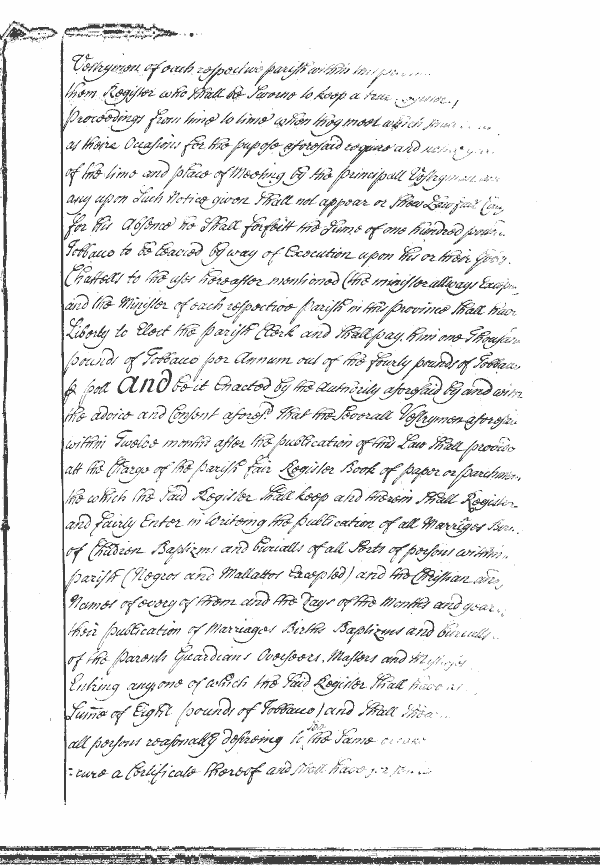 Vestrymen of each respective parish within
them Register who shall be Sworne to keep a true
proceedings from time to time when they meet which
as theire Occasions for the pupose aforesaid require and
of the time and place of Meeting by the principall Vestryman
any upon Such Notice given Shall not appear or Shew Lawfull
for his Absence he Shall forfeit the Sume of one hundred
Tobbaco to be Leavied by way of Execution upon his or their
Chattells to the uses hereafter mentioned (the minister allways
and the Minister of each respective Parish in this province Shall
Liberty to Elect the parish Clerk and Shall pay him one
pounds of Tobbaco per Annum out of the fourty pounds of
p poll And be it Enacted by the authority aforesaid by and
the advice and Consent aforesd. That the Severall Vestrymen
within Twelve months after the publication of this Law Shall provide
att the Charge of the parish fair Register Book of paper or
the which the Said Register Shall keep and therein Shall Register
and fairly Enter in Writeing the publication of all Marriges
of Children Baptizms and burialls of all Sorts of persons within
parish (Negros and Mallattos Excepted) and the Christian
Names of every of them and the days of the Months and
their publication of Marriages Births Baptizms and burialls
of the parents Guardians Overseers, Masters and
Entring any one of which the Said Register Shall
Sum̅e of Eight (pounds of Tobbaco) and Shall
all persons reasonally desireing to the Same
=cure a Certificate thereof and Shall have